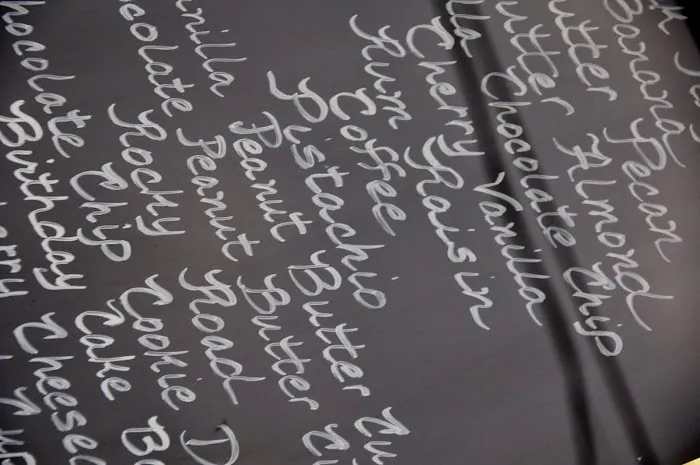 Banana
utter Pecan
utter Almond
lla Chocolate Chip
Cherry Vanilla
Rum Raisin
Coffee
Pistachio
nilla Peanut Butter Cu
ocolate Peanut Butter C
Rocky Road
hocolate Chip Cookie D
Birthday Cake B
erry Cheesec